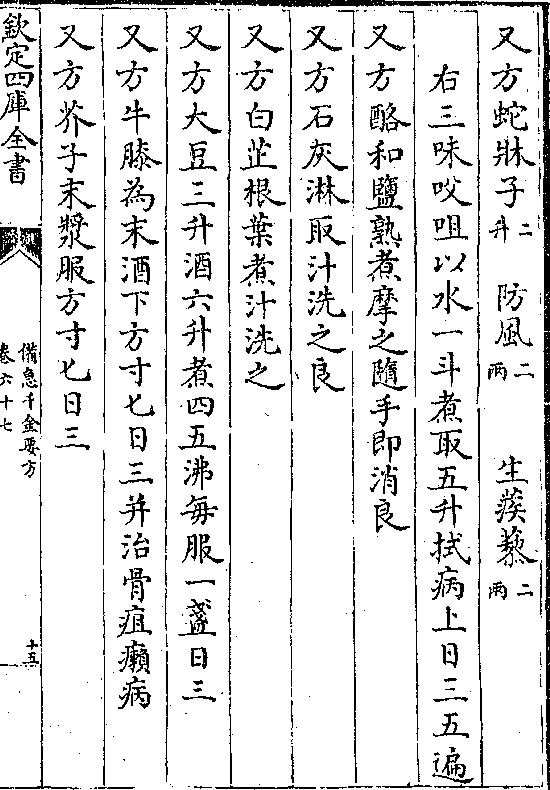 又方蛇牀子二升 防風二兩 生蒺藜二兩
右三味㕮咀以水一斗煮取五升拭病上日三五遍
又方酪和鹽熟煮摩之隨手即消良
又方石灰淋取汁洗之良
又方白芷根葉煮汁洗之
又方大豆三升酒六升煮四五沸每服一盞日三
又方牛膝為末酒下方寸匕日三并治骨疽癩病
又方芥子末漿服方寸匕日三
欽定四庫全書
備急千金要方
卷六十七
十五